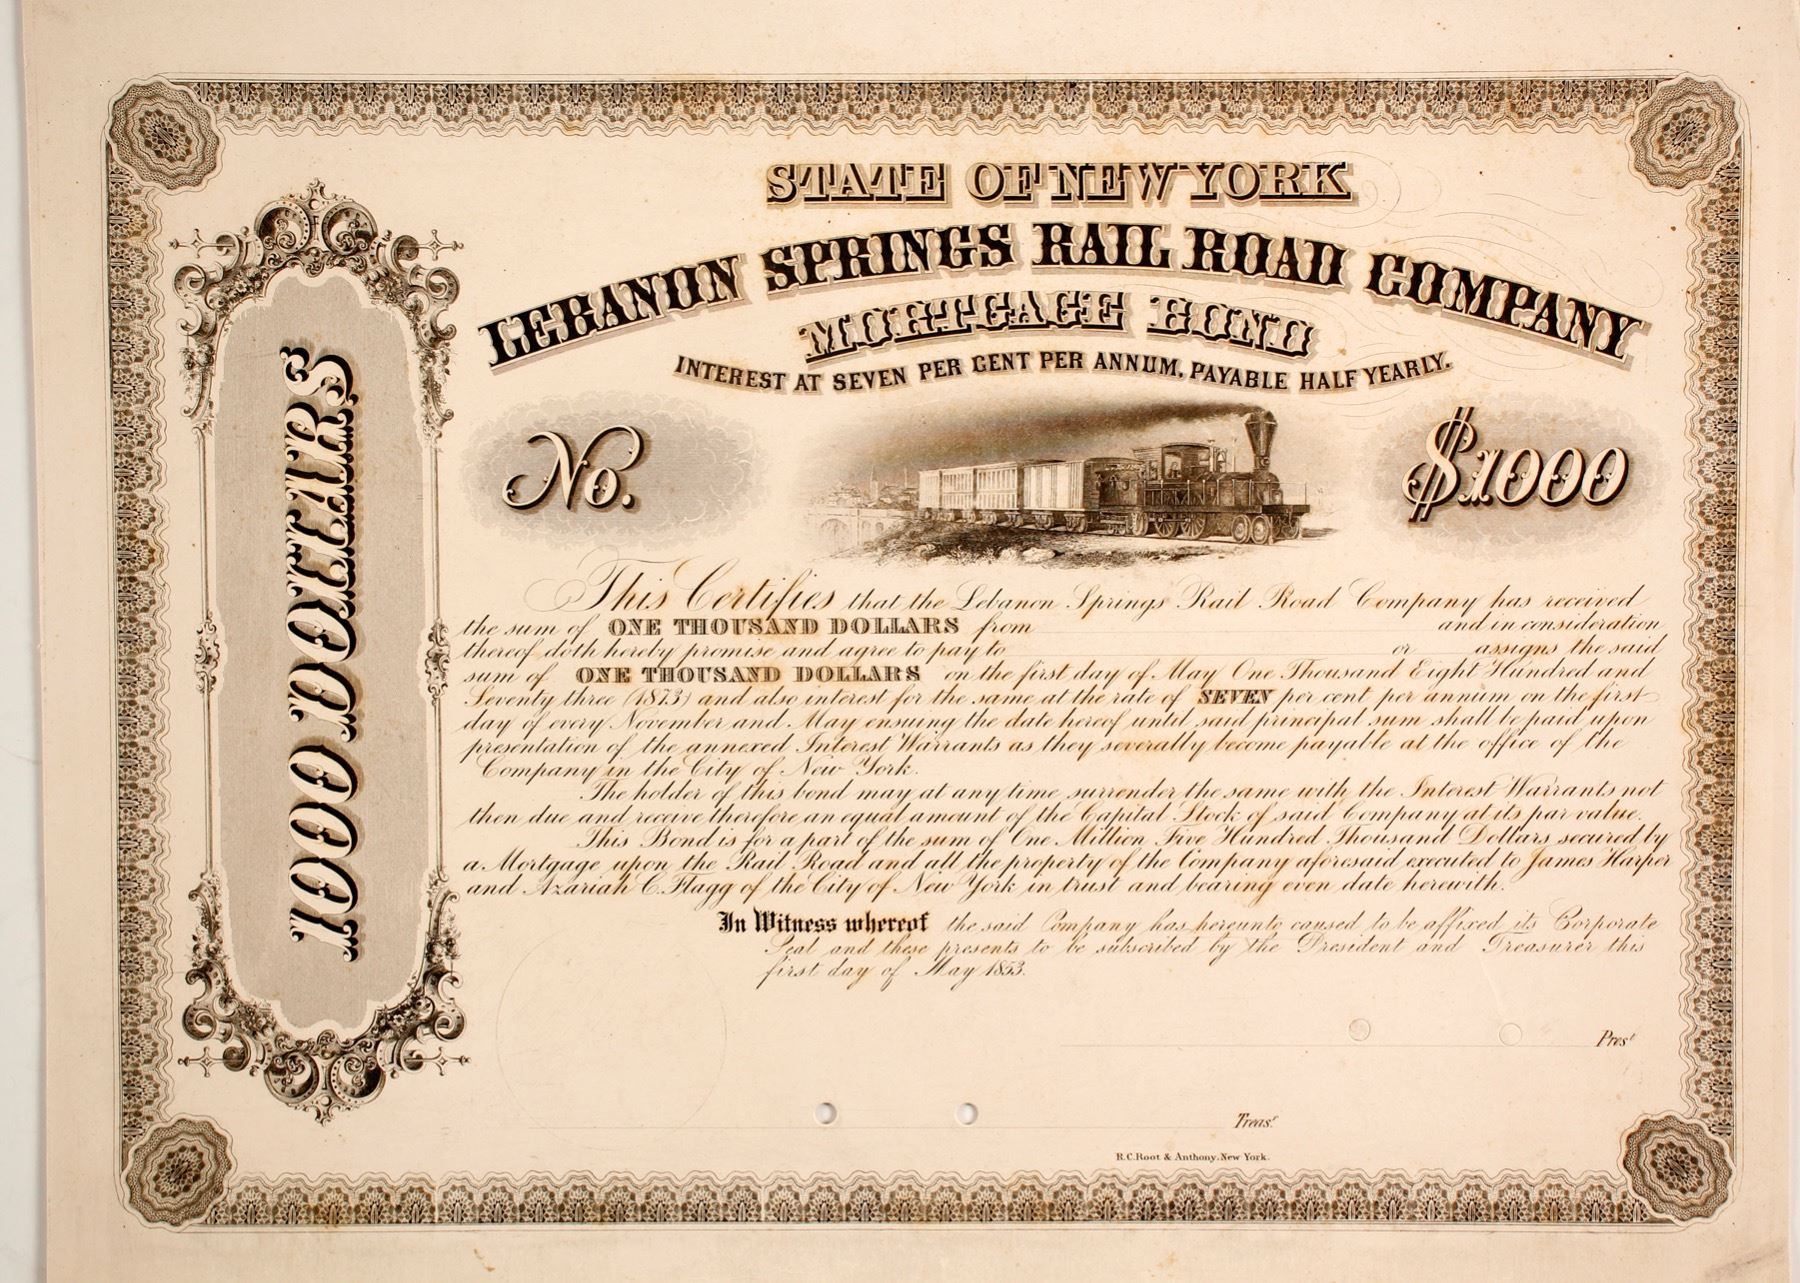 STATE OF NEW YORK
LEBANON SPRINGS RAIL ROAD COMPANY
MORTGAGE BOND
INTEREST AT SEVEN PER CENT PER ANNUM, PAYABLE HALF YEARLY.
No.
$1000
1000 DOLLARS
This Certifies that the Lebanon Springs Rail Road Company has received
the sum of ONE THOUSAND DOLLARS from and in consideration
thereof doth hereby promise and agree to pay to or assigns the said
sum of ONE THOUSAND DOLLARS on the first day of May One Thousand Eight Hundred and
Seventy three (1873) and also interest for the same at the rate of SEVEN per cent per annum on the first
day of every November and May ensuing the date hereof until said principal sum shall be paid upon
presentation of the annexed Interest Warrants as they severally become payable at the office of the
Company in the City of New York.
The holder of this bond may at any time surrender the same with the Interest Warrants not
then due and receive therefore an equal amount of the Capital Stock of said Company at its par value.
This Bond is for a part of the sum of One Million Five Hundred Thousand Dollars secured by
a Mortgage upon the Rail Road and all the property of the Company aforesaid executed to James Harper
and Azariah C. Flagg of the City of New York in trust and bearing even date herewith.
In Witness whereof the said Company has hereunto caused to be affixed its Corporate
Seal and these presents to be subscribed by the President and Treasurer this
first day of May 1853.
Prest
Treasr
R.C. Root & Anthony. New York.